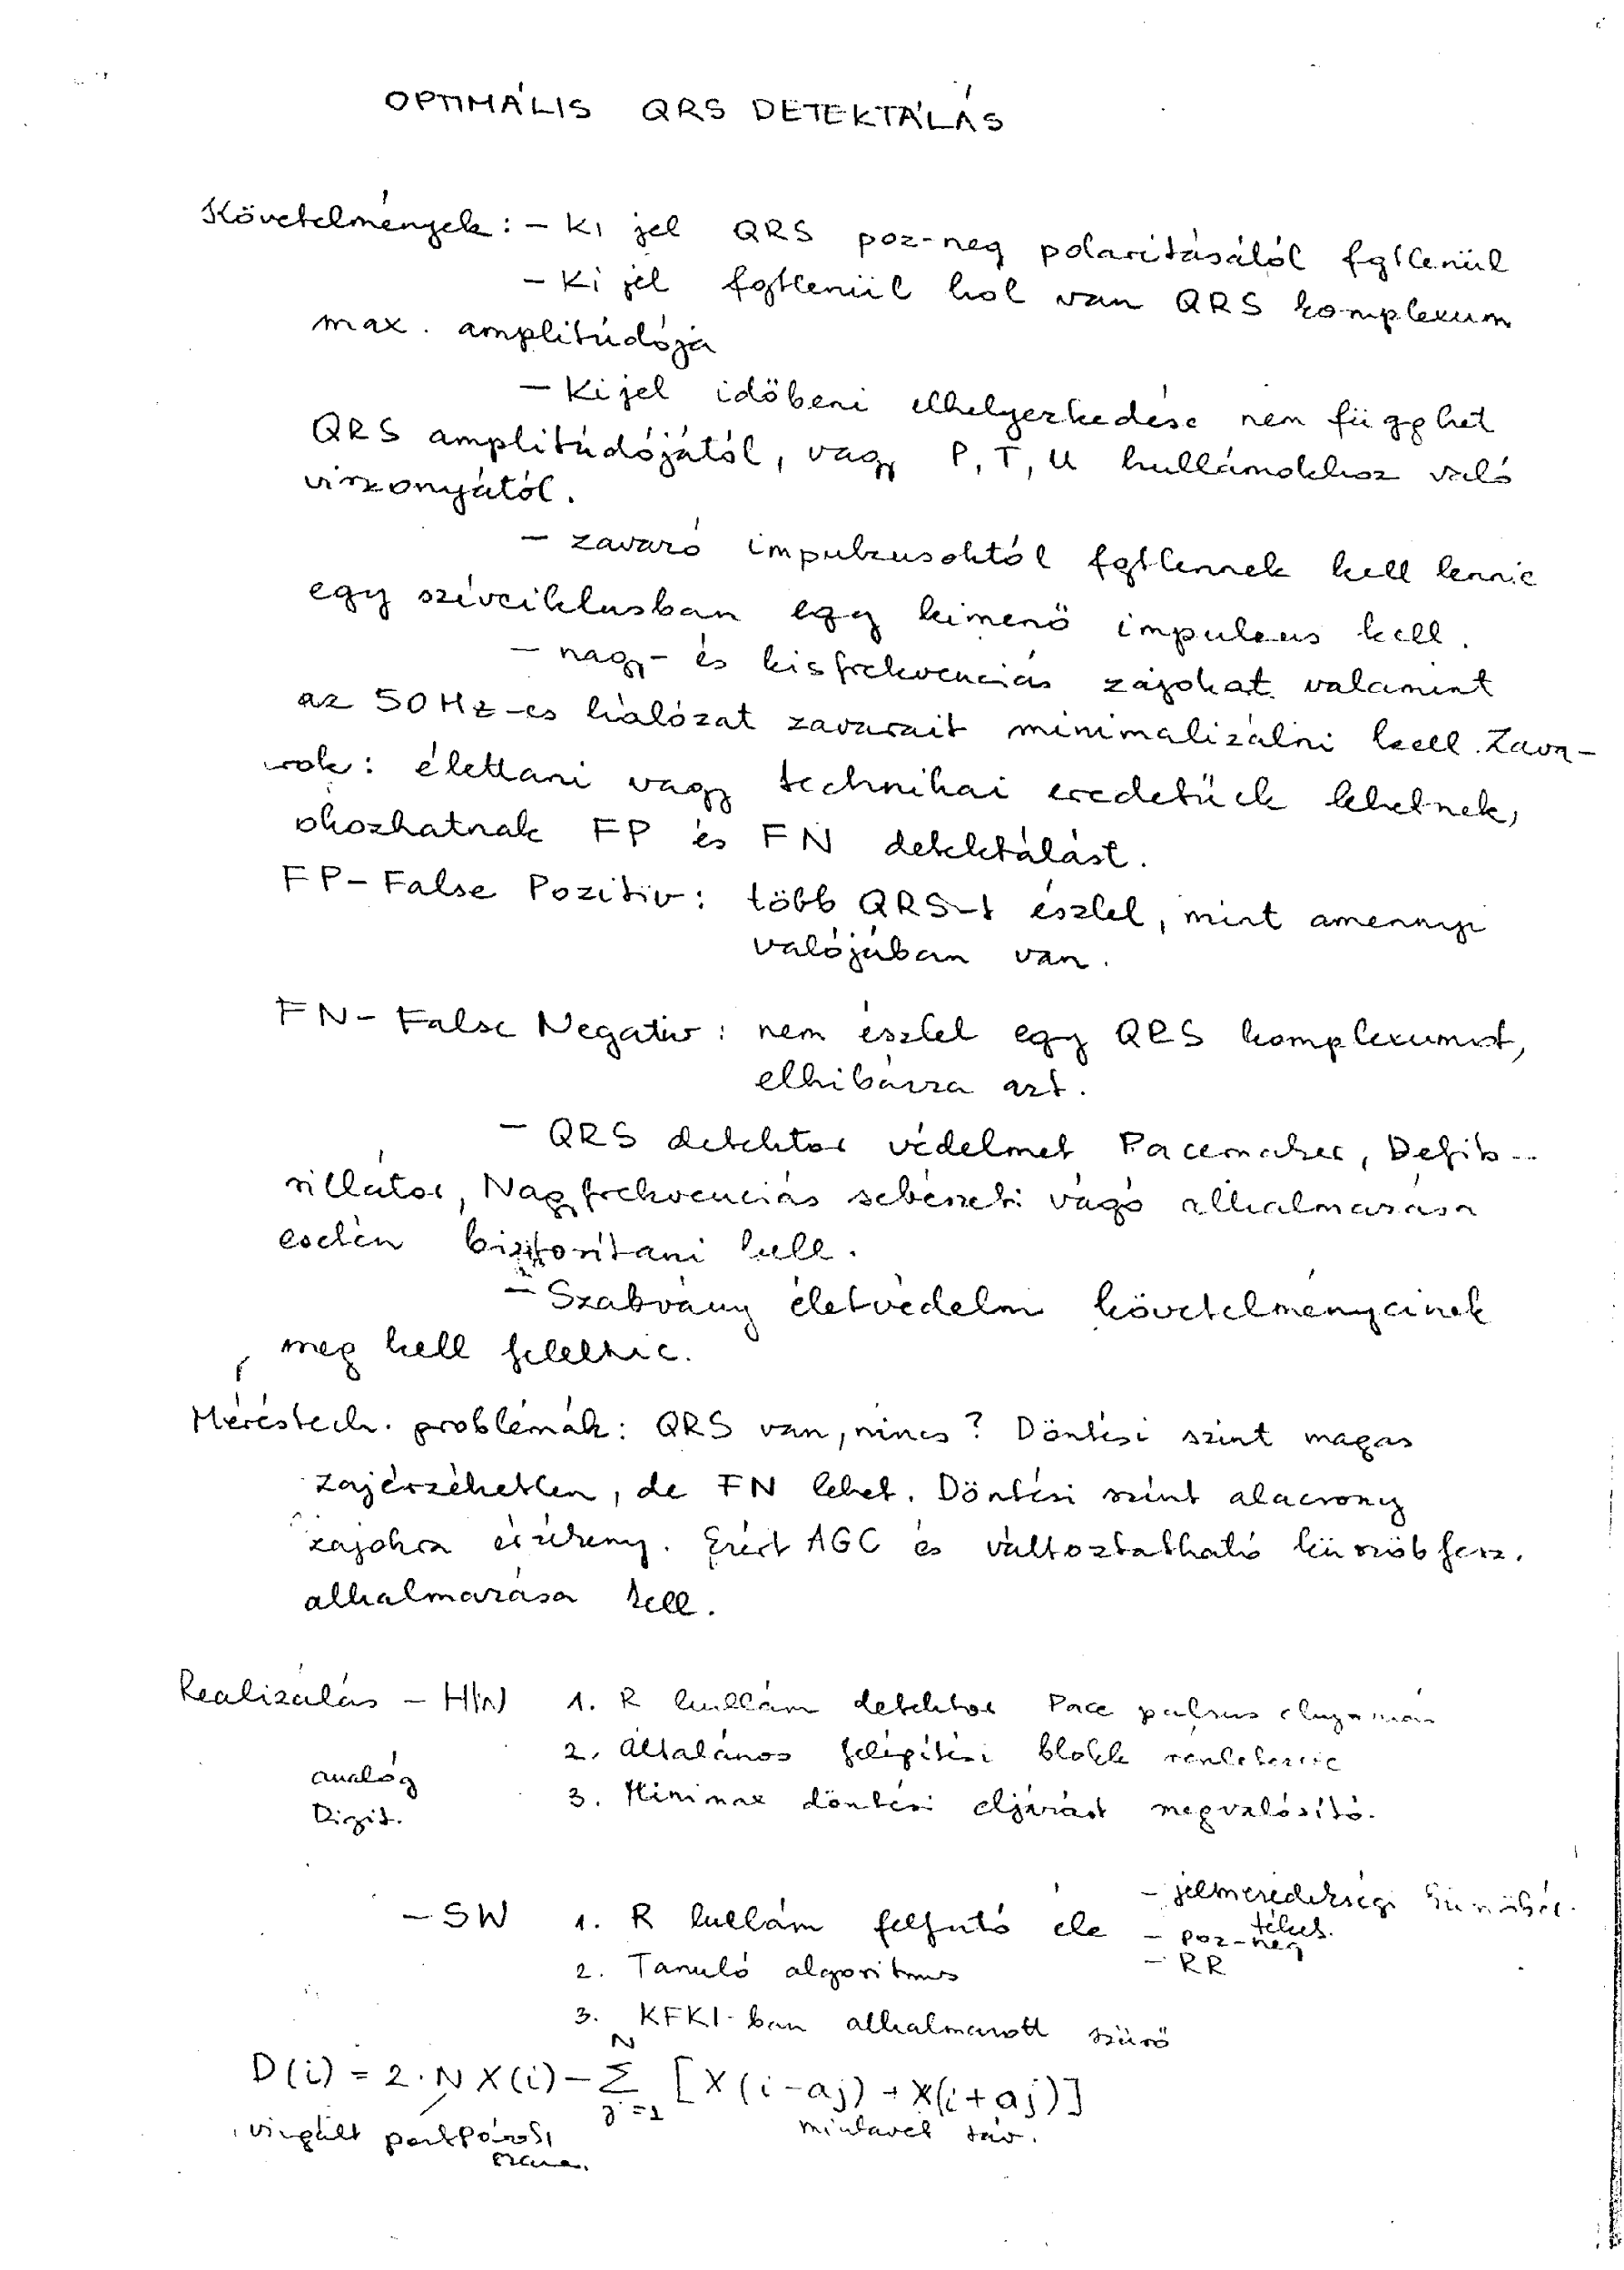 OPTIMÁLIS QRS DETEKTÁLÁS
Követelmények: - Ki jel QRS poz-neg polaritásától fgtlenül
- Ki jel fgtlenül hol van QRS komplexum
max. amplitúdója
- Ki jel időbeni elhelyezkedése nem függhet
QRS amplitúdójától, vagy P, T, U hullámokhoz való
viszonyától.
- zavaró impulzusoktól fgtlennek kell lennie
egy szívciklusban egy kimenő impulzus kell.
- nagy- és kisfrekvenciás zajokat valamint
az 50 Hz-es hálózat zavarait minimalizálni kell. Zava-
rok: élettani vagy technikai eredetűek lehetnek,
okozhatnak FP és FN detektálást.
FP - False Pozitív: több QRS-t észlel, mint amennyi
valójában van.
FN - False Negatív: nem észlel egy QRS komplexumot,
elhibázza azt.
- QRS detektor védelmét Pacemaker, Defib-
rillátor, Nagyfrekvenciás sebészeti vágó alkalmazása
esetén biztosítani kell.
- Szabvány életvédelmi követelményeinek
meg kell felelnie.
Méréstech. problémák: QRS van, nincs? Döntési szint magas
zajérzéketlen, de FN lehet. Döntési szint alacsony
zajokra érzékeny. Ezért AGC és változtatható küszöb fesz.
alkalmazása kell.
Realizálás - HW 1. R hullám detektor Pace pulzus
2. Általános felépítési blokk
analóg
3. Minimax döntési eljárást megvalósító.
Digit.
- jelmeredekségi
- SW 1. R hullám felfutó éle - poz-neg
2. Tanuló algoritmus - RR
3. KFKI-ban alkalmazott szűrő
D(i) = 2·N X(i) - Σ_{j=1}^{N} [X(i-aj) + X(i+aj)]
vizsgált pontpárok mintavét. táv.
száma.